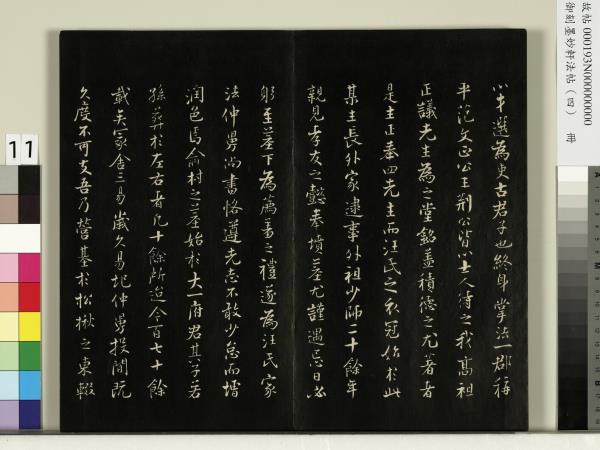 以才選為吏古君子也終身掌法一郡稱
平范文正公王荊公皆以士人待之我高祖
正議先生為之堂銘蓋積德之尤著者
是生正奉四先生而汪氏之衣冠始於此
某生長外家逮事外祖少師二十餘年
親見孝友之懿奉墳墓尤謹遇忌日必
躬至墓下為薦羞之禮遂為汪氏家
法仲舅尚書恪遵先志不敢少怠而增
潤色焉俞村之墓始於大一府君其子若
孫葬於左右者凡十餘所迨今百七十餘
載矣冢舍三易歲久易圮仲舅投閒既
久度不可支吾乃營基於松楸之東輟
故帖 000193N000000000
御刻墨妙軒法帖（四） 冊
11